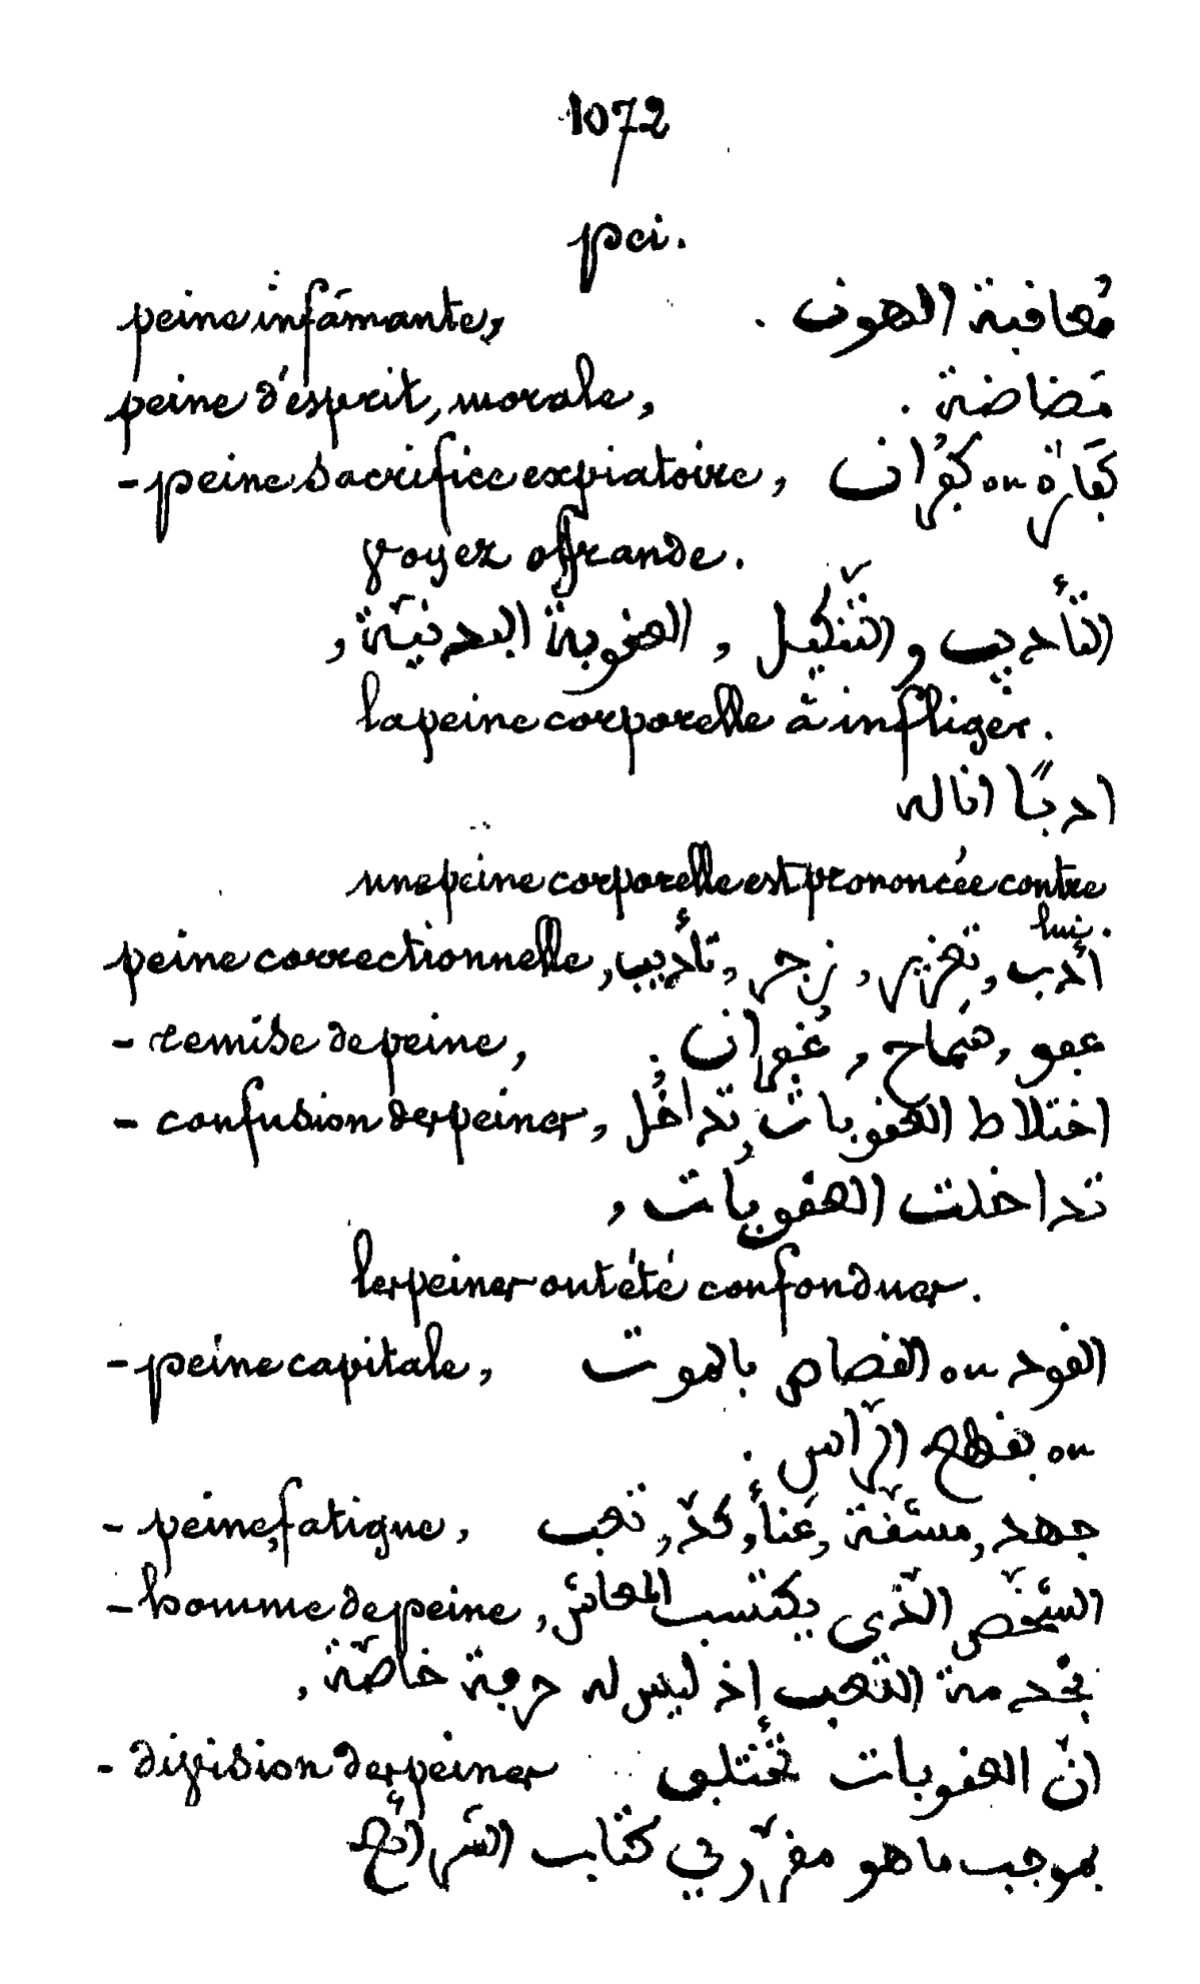 1072
pei.
peine infamante, مُعاقبة الهون .
peine d'esprit, morale, مَضاضة .
- peine sacrifice expiatoire, كَفّارة ou كُفْران
voyez offrande.
التأديب والتّنكيل , العقوبة البدنيّة ,
la peine corporelle à infliger.
ادبًا اناله
une peine corporelle est prononcée contre
lui.
peine correctionnelle, أدب , تعزير , زجر , تأديب
- remise de peine, عفو , سَماح , غُفران .
- confusion des peines, اختلاط العقوبات , تداخُل
تداخلت العقوبات ,
les peines ont été confondues.
- peine capitale, القود ou القصاص بالموت
ou بقطع الرّأس .
- peine, fatigue, جهد , مشقّة , عَنأ , كدّ , تعب
- homme de peine, الشّخص الّذي يكتسب المعاش
بخدمة التّعب إذ ليس له حرفة خاصّة ,
- division des peines انّ العقوبات تختلف
بموجب ما هو مقرّر في كتاب الشّرائع